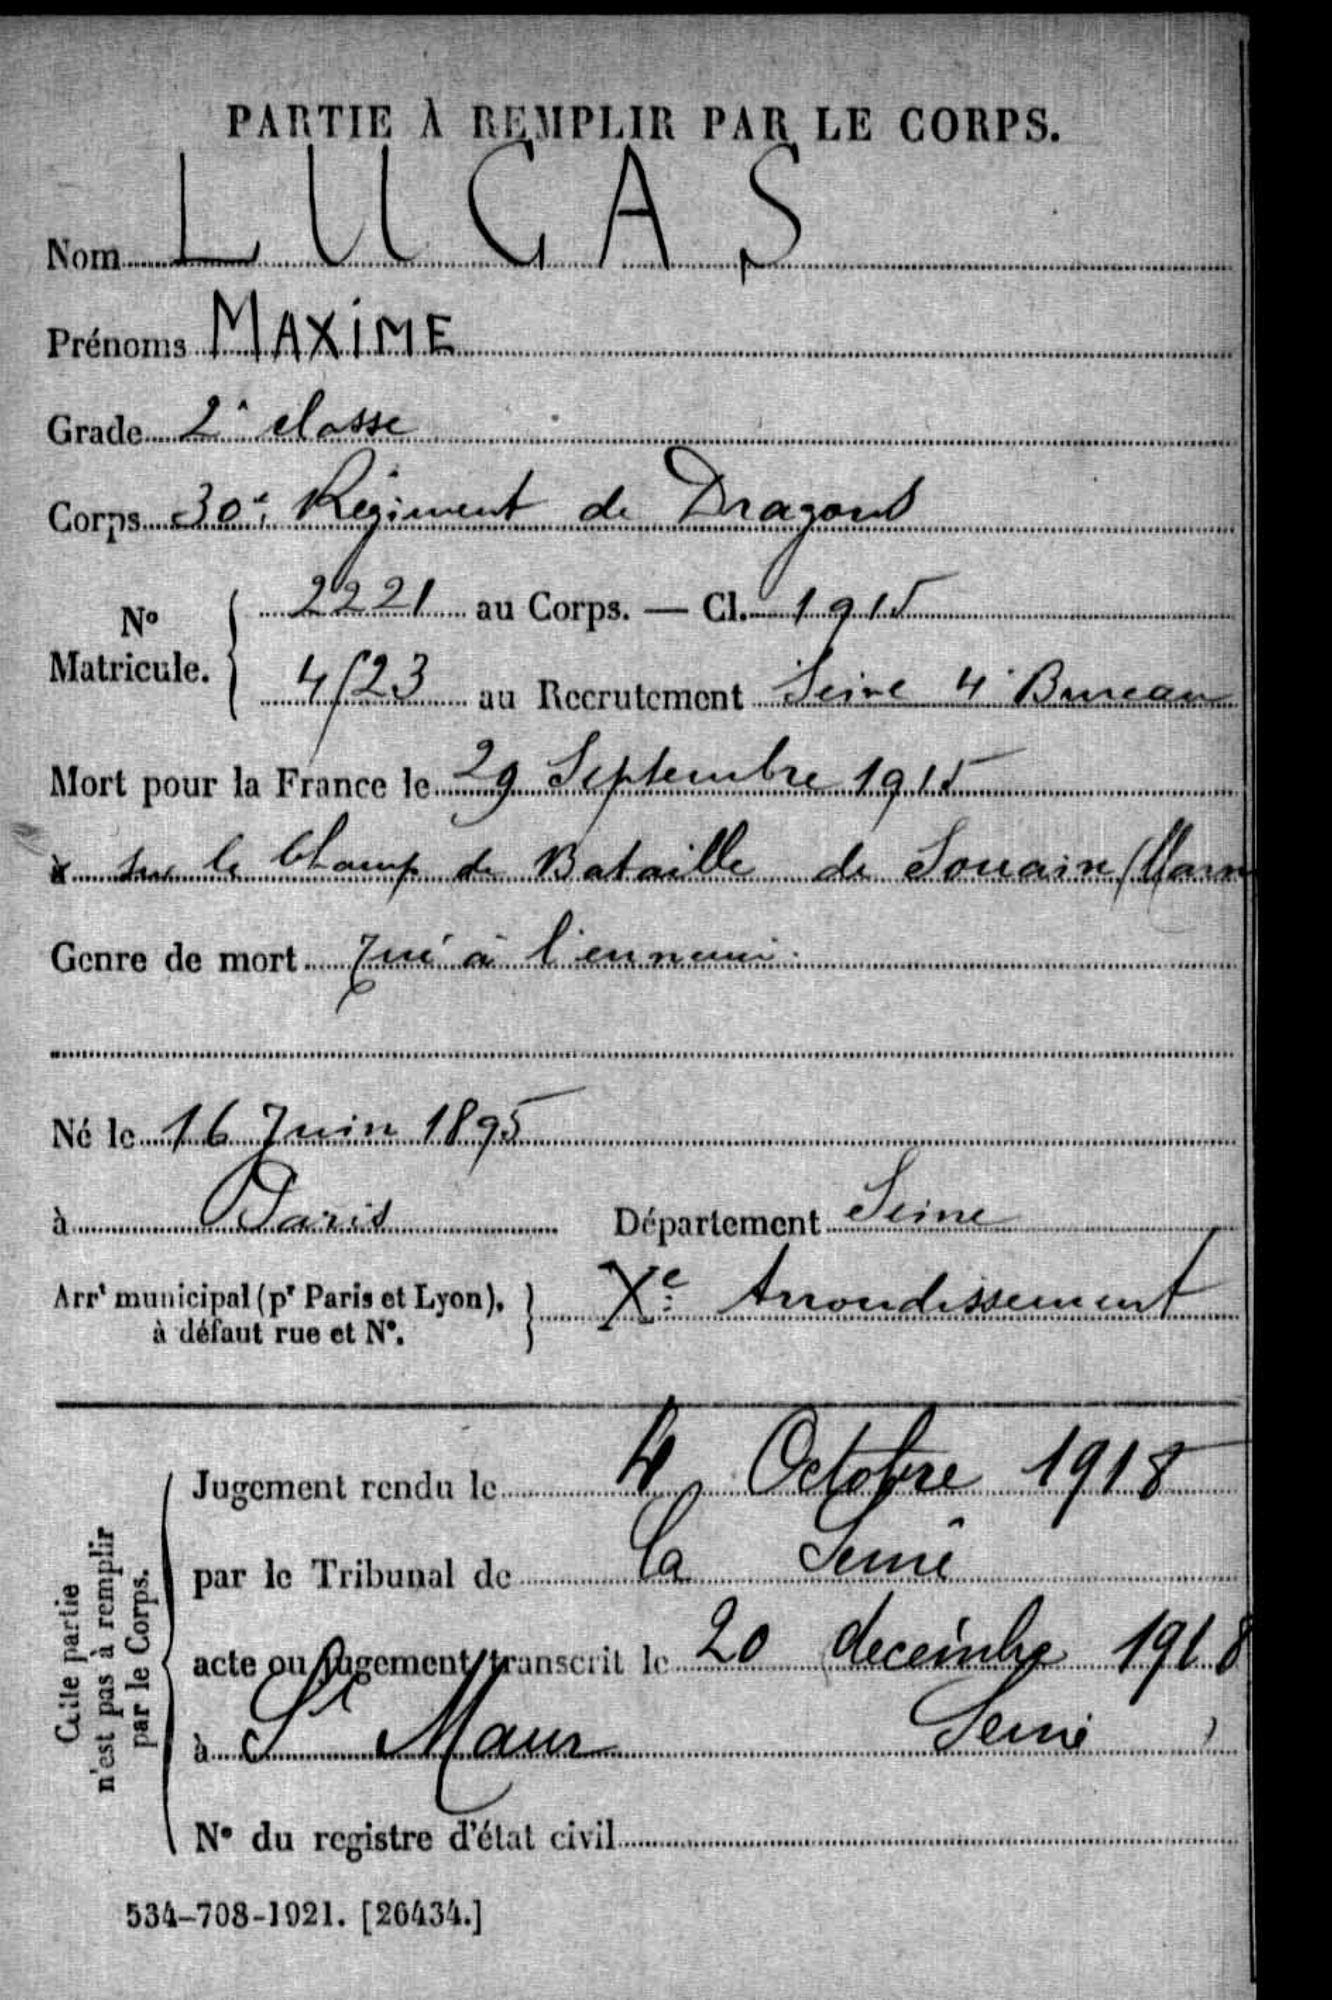 PARTIE À REMPLIR PAR LE CORPS.
Nom LUCAS
Prénoms MAXIME
Grade 2e classe
Corps 30e Régiment de Dragons
No Matricule. 2221 au Corps. — Cl. 1915
4523 au Recrutement Seine 4e Bureau
Mort pour la France le 29 Septembre 1915
à sur le Champ de Bataille de Souain (Marne
Genre de mort Tué à l'ennemi
Né le 16 Juin 1895
à Paris Département Seine
Arrt municipal (pr Paris et Lyon), à défaut rue et No. Xe Arrondissement
Cette partie n'est pas à remplir par le Corps.
Jugement rendu le 4 Octobre 1918
par le Tribunal de la Seine
acte ou jugement transcrit le 20 decembre 1918
à St Maur Seine
No du registre d'état civil
534-708-1921. [26434.]